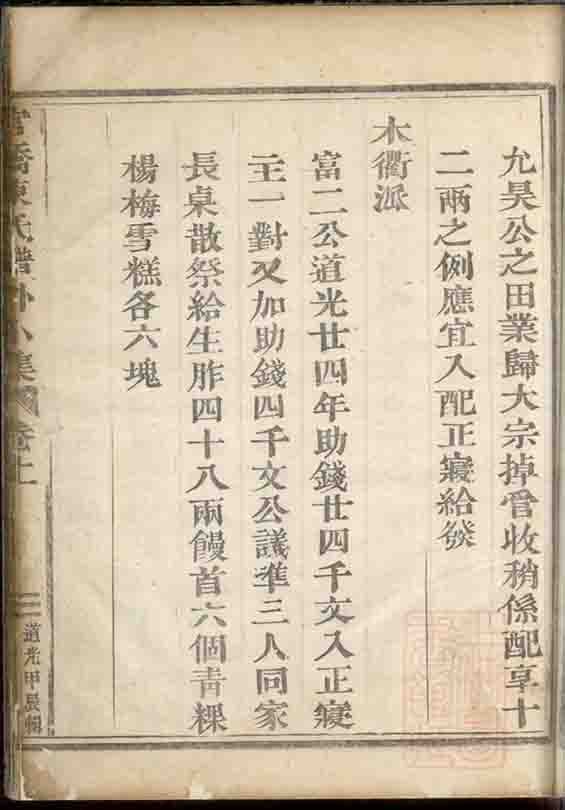 允昊公之田業歸大宗掉管收稍係配享十
二兩之例應宜入配正寢給發
木衢派
富二公道光廿四年助錢廿四千文入正寢
主一對又加助錢四千文公議準三人同家
長桌散祭給生胙四十八兩饅首六個青粿
楊梅雪糕各六塊
橋陳氏譜外八集 卷上
三 道光甲辰輯